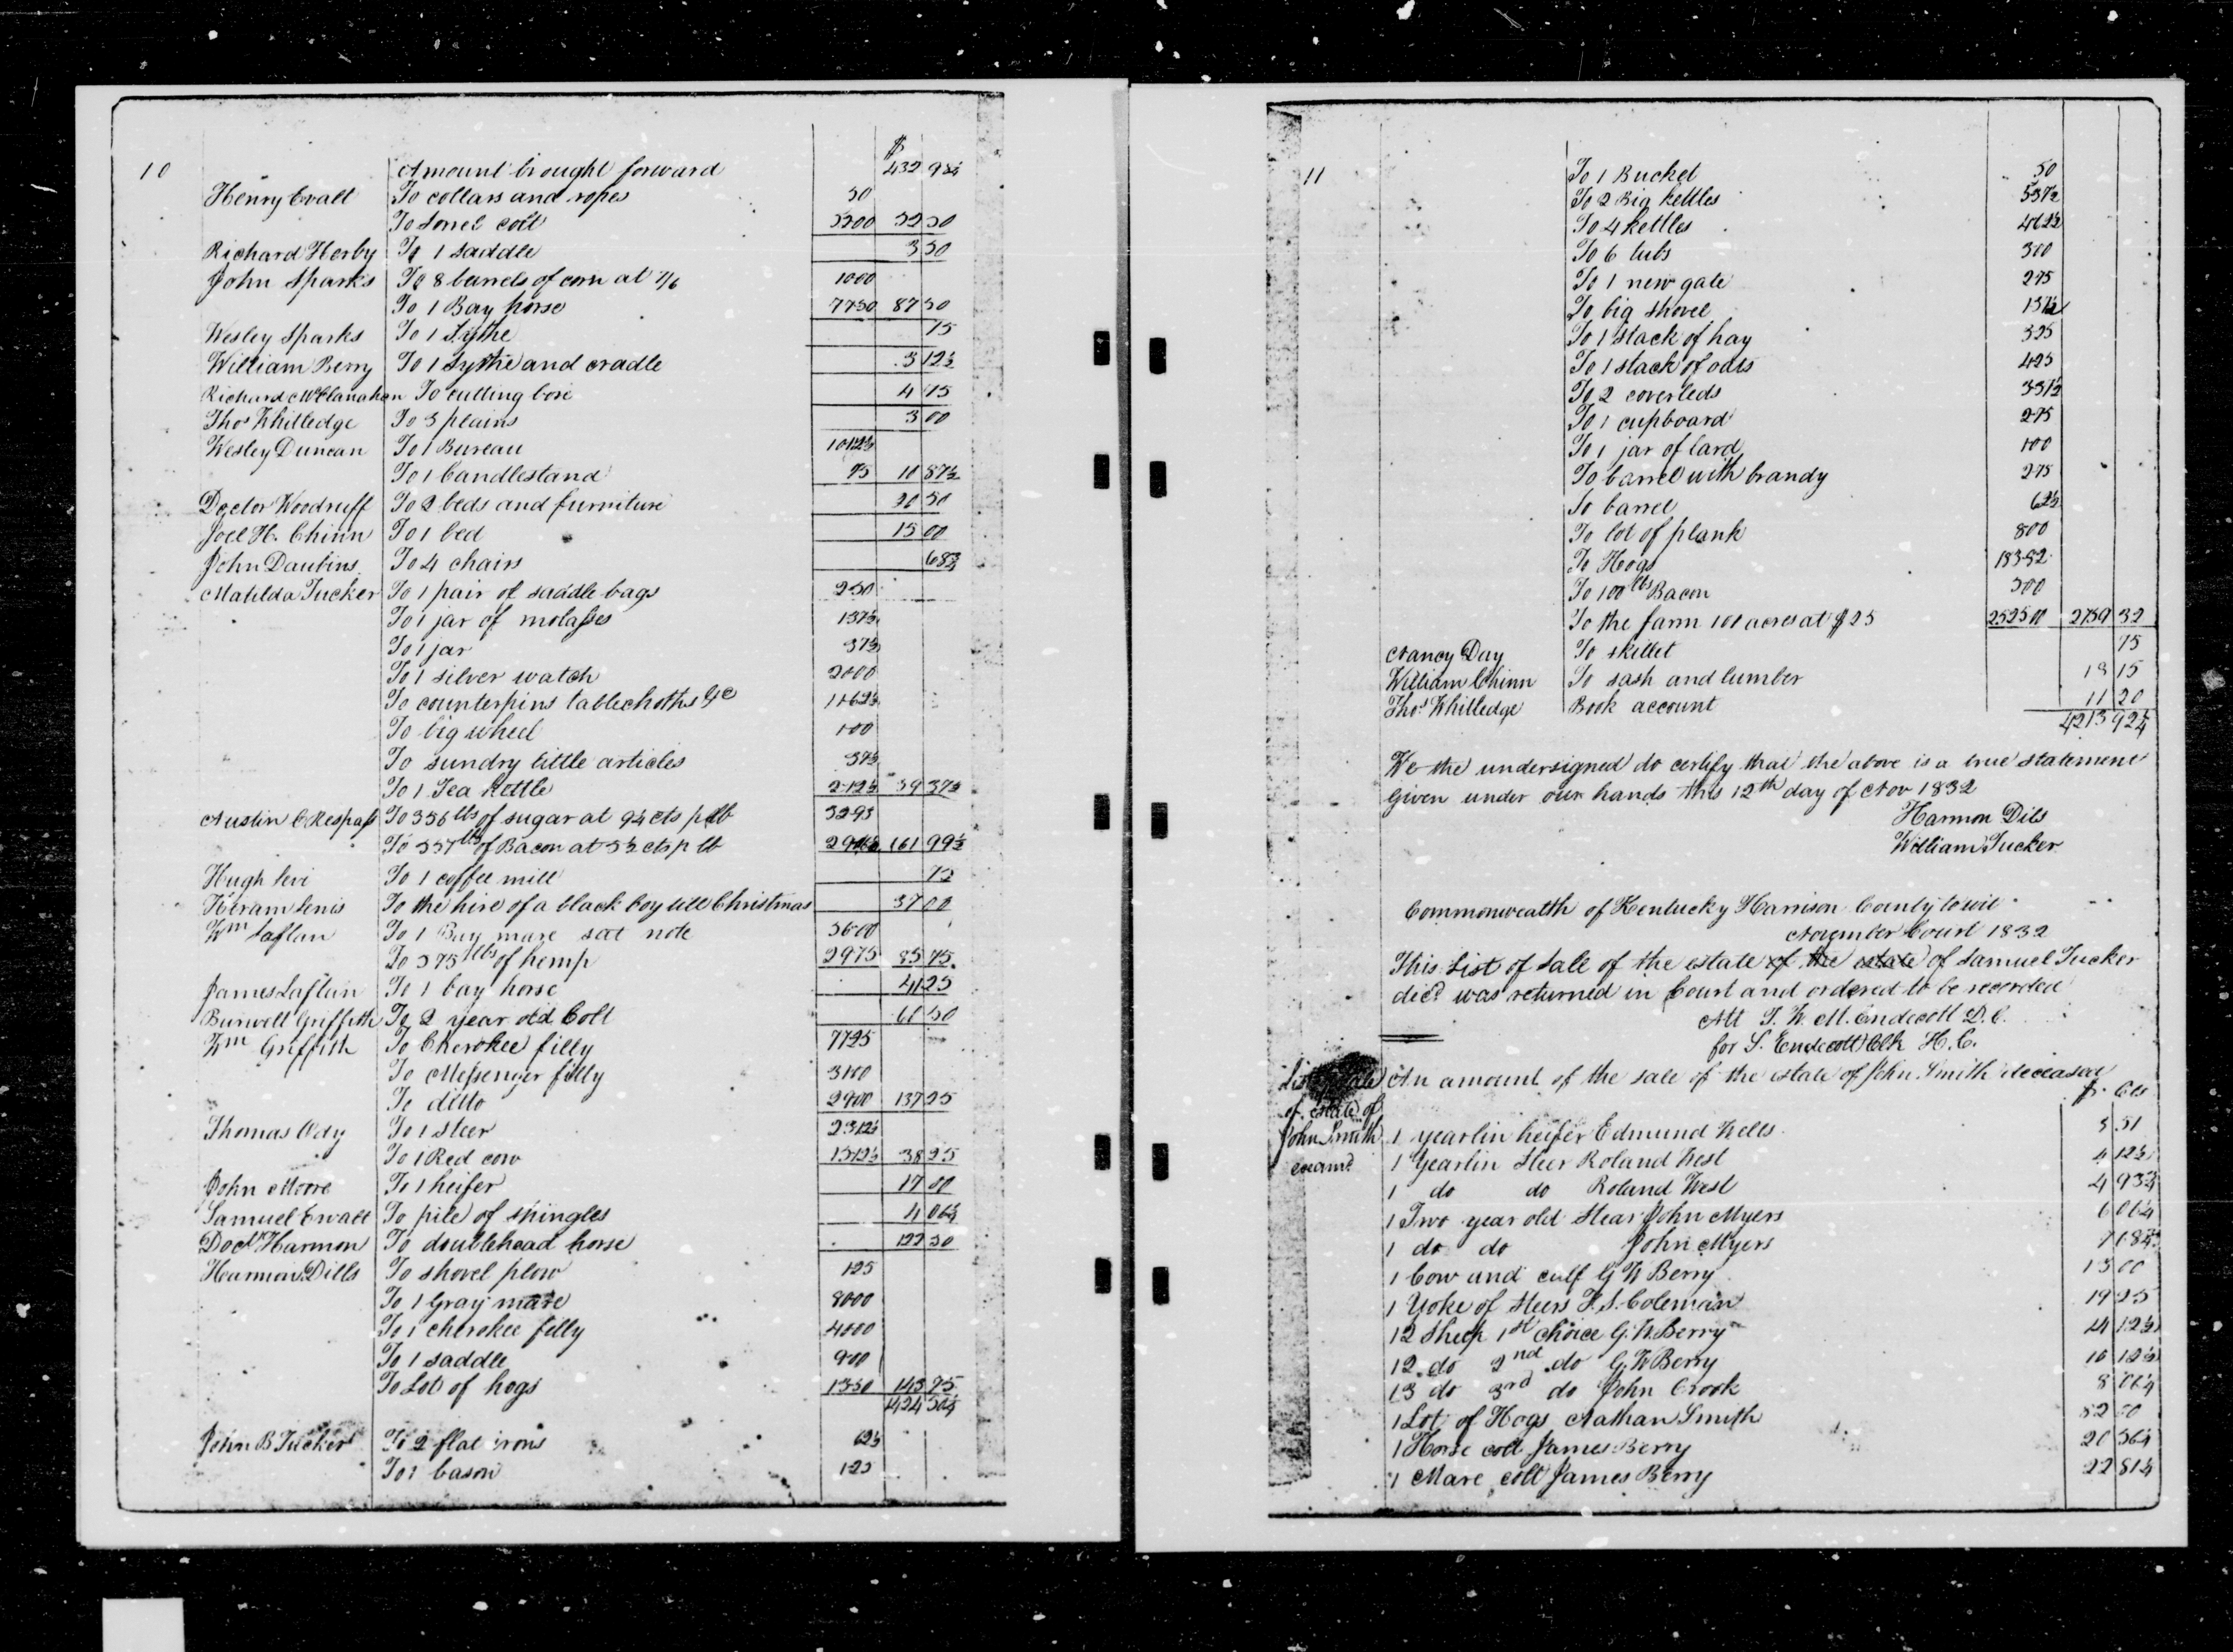 10
$
Amount brought forward 432 98½
Henry Evalt To collars and ropes 50
To Sorrel colt 5200 52 50
Richard Herby To 1 saddle 3 50
John Sparks To 8 barrels of corn at 7/6 1000
To 1 Bay horse 7750 87 50
Wesley Sparks To 1 Sythe 75
William Berry To 1 sythe and cradle 3 12½
Richard McClanahan To cutting box 4 75
Thos Whitledge To 3 plains 3 00
Wesley Duncan To 1 Bureau 1012½
To 1 Candlestand 75 10 87½
Doctor Woodruff To 2 beds and furniture 50
Joel H. Chinn To 1 bed 15 00
John Daubins To 4 chairs 68¾
Matilda Tucker To 1 pair of saddle bags 250
To 1 jar of molasses 137½
To 1 jar 37½
To 1 silver watch 2000
To counterpins tablechoths &c 1162½
To big wheel 100
To sundry little articles 37½
To 1 Tea kettle 212½ 39 37½
Austin C Respass To 356 lbs of sugar at 9¼ cts p lb 3293
To 537 lbs of Bacon at 5½ cts p lb 161 99½
Hugh Levi To 1 coffee mill 75
Hiram Lenis To the hire of a black boy till Christmas 37 00
Wm Laflan To 1 Bay mare sat note 5600
To 595 lbs of hemp 2975 85 75
James Laflan To 1 bay horse 41 25
Burwell Griffith To 2 year old Colt 61 50
Wm Griffith To Cherokee filly 7725
To Messenger filly 3100
To ditto 2900 137 25
Thomas Ody To 1 steer 2312½
To 1 Red cow 1512½ 38 25
John Moore To 1 heifer 17 00
Samuel Ewalt To pile of shingles 4 06¼
Doct Harmon To doublehead horse 122 50
Harmon Dills To shovel plow 125
To 1 Gray mare 8000
To 1 cherokee filly 4000
To 1 saddle 900
To Lot of hogs 1350 143 75
1424 50¼
John B Tucker To 2 flat irons 62½
To 1 bason 125
11
To 1 Bucket 50
To 2 Big kettles 537½
To 4 kettles 462½
To 6 tubs 300
To 1 new gate 275
To big shovel 137½
To 1 stack of hay 325
To 1 stack of oats 425
To 2 coverleds 331½
To 1 cupboard 275
To 1 jar of lard 100
To barrel with brandy 275
To barrel 62½
To lot of plank 800
To Hogs 18382
To 100 lbs Bacon 500
To the farm 101 acres at $25 252500 2759 32
Nancy Day To skillet 75
William Chinn To sash and lumber 18 15
Thos Whitledge Book account 11 20
4213 92¼
We the undersigned do certify that the above is a true statement
Given under our hands this 12th day of Nov 1832
Harmon Dils
William Tucker
Commonwealth of Kentucky Harrison County to wit
November Court 1832
This List of Sale of the estate of the estate of Samuel Tucker
decd was returned in Court and ordered to be recorded
Att T. W. M. Endecott D.C.
for S. Endecott Clk H.C.
An amount of the sale of the estate of John Smith deceased
$ Cts
of estate of
John Smith
examd
1 yearlin heifer Edmund Wells 3 51
1 Yearlin Steer Roland West 4 12½
1 do do Roland West 4 93¾
1 Two year old Stear John Myers 6 06¼
1 do do John Myers 7 68¾
1 Cow and calf G W Berry 13 00
1 Yoke of Steers F. S. Coleman 19 25
12 Sheep 1st choice G. W. Berry 14 12½
12 do 2nd do G. W Berry 10 12½
13 do 3rd do John Crook 8 06¼
1 Lot of Hogs Nathan Smith 52 00
1 Horse colt James Berry 20 56¼
1 Mare colt James Berry 22 81¼